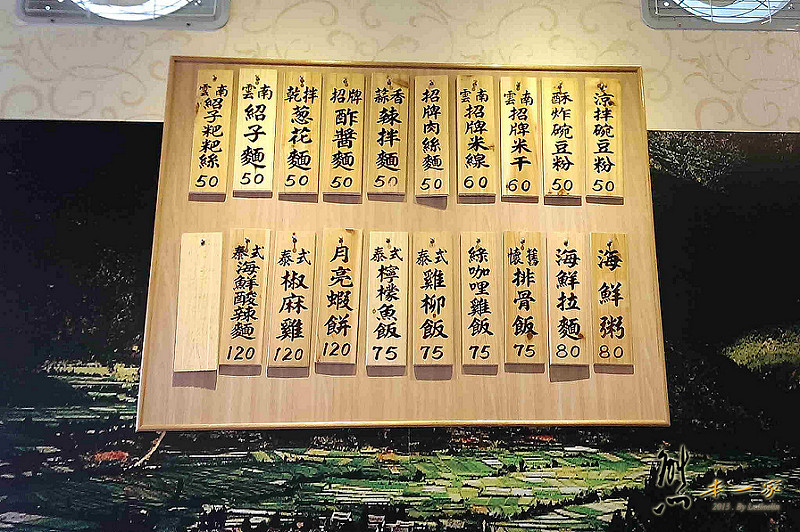 涼拌碗豆粉 50
酥炸碗豆粉 50
雲南招牌米干 60
雲南招牌米線 60
招牌肉絲麵 50
蒜香辣拌麵 50
招牌酢醬麵 50
乾拌蔥花麵 50
雲南紹子麵 50
雲南紹子粑粑絲 50
海鮮粥 80
海鮮拉麵 80
懷舊排骨飯 75
綠咖哩雞飯 75
泰式雞柳飯 75
泰式檸檬魚飯 75
月亮蝦餅 120
泰式椒麻雞 120
泰式海鮮酸辣麵 120